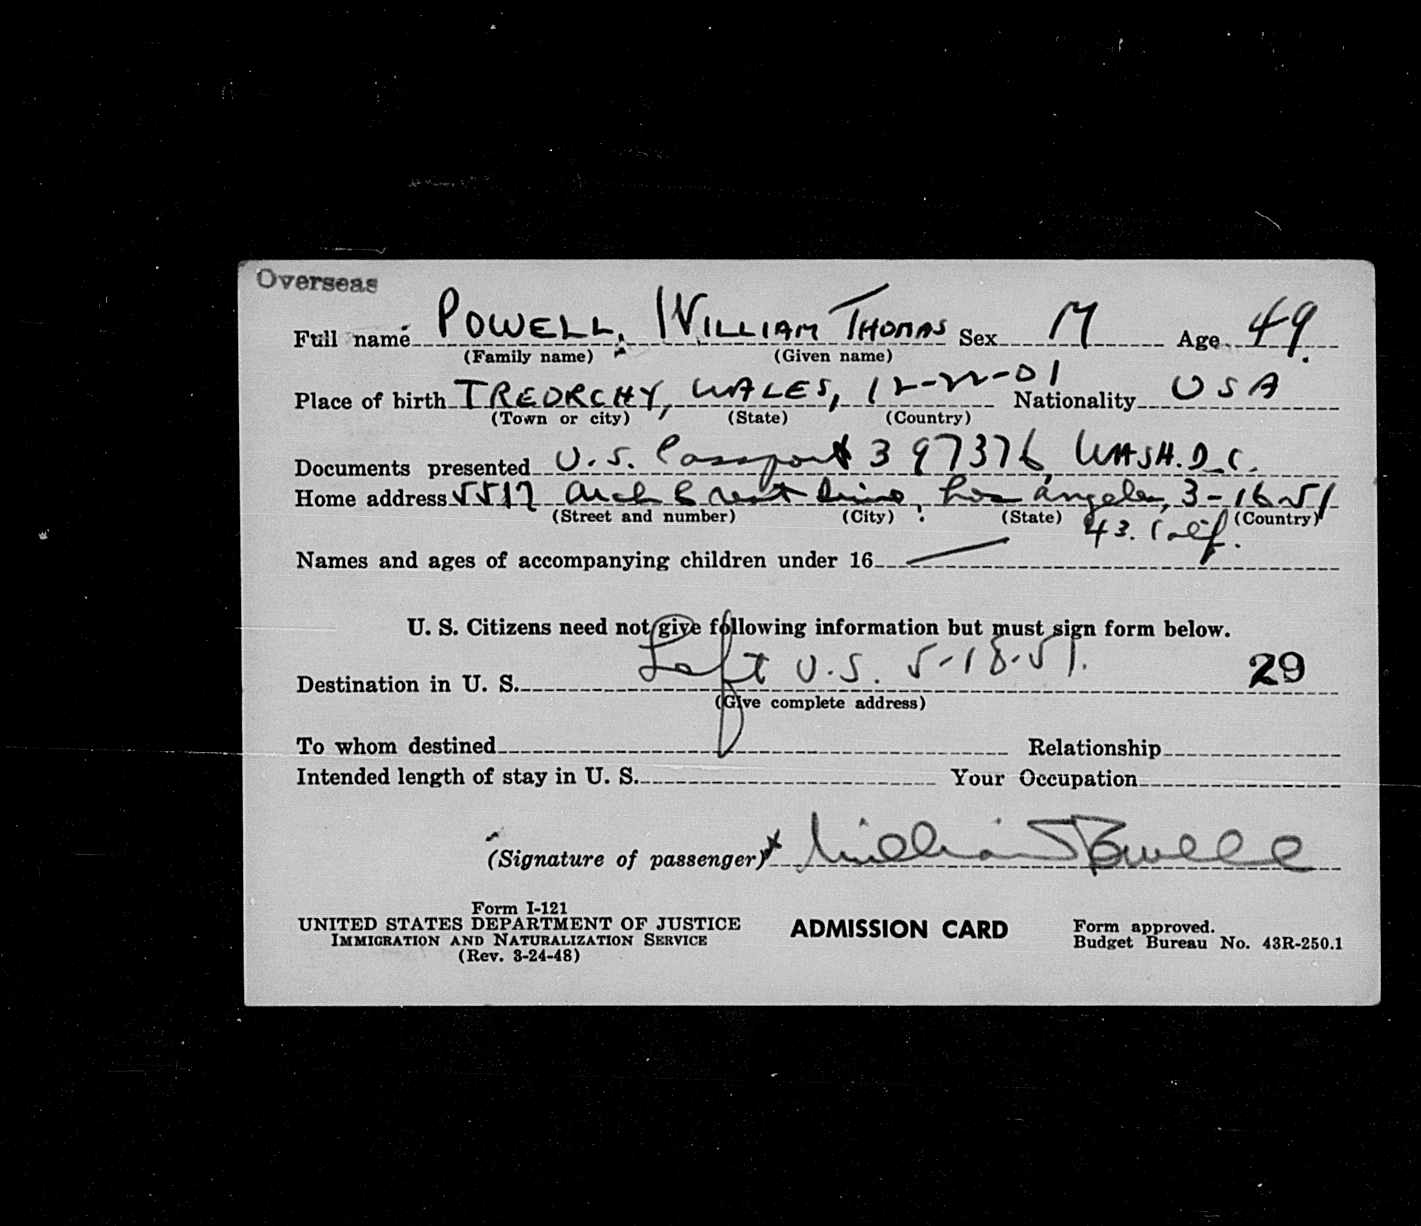 Overseas
Full name POWELL, WILLIAM THOMAS Sex M Age 49.
(Family name) (Given name)
Place of birth TREORCHY, WALES, 12-22-01 Nationality USA
(Town or city) (State) (Country)
Documents presented U.S. Passport 397376, WASH. D.C.
Home address 5517 Arch Crest Drive, Los Angeles, 3-16-51
(Street and number) (City) (State) (Country)
43. Calif.
Names and ages of accompanying children under 16
U. S. Citizens need not give following information but must sign form below.
Left U.S. 5-18-51. 29
Destination in U. S.
(Give complete address)
To whom destined Relationship
Intended length of stay in U. S. Your Occupation
(Signature of passenger) x William T Powell
Form I-121
UNITED STATES DEPARTMENT OF JUSTICE
IMMIGRATION AND NATURALIZATION SERVICE
(Rev. 3-24-48)
ADMISSION CARD
Form approved.
Budget Bureau No. 43R-250.1